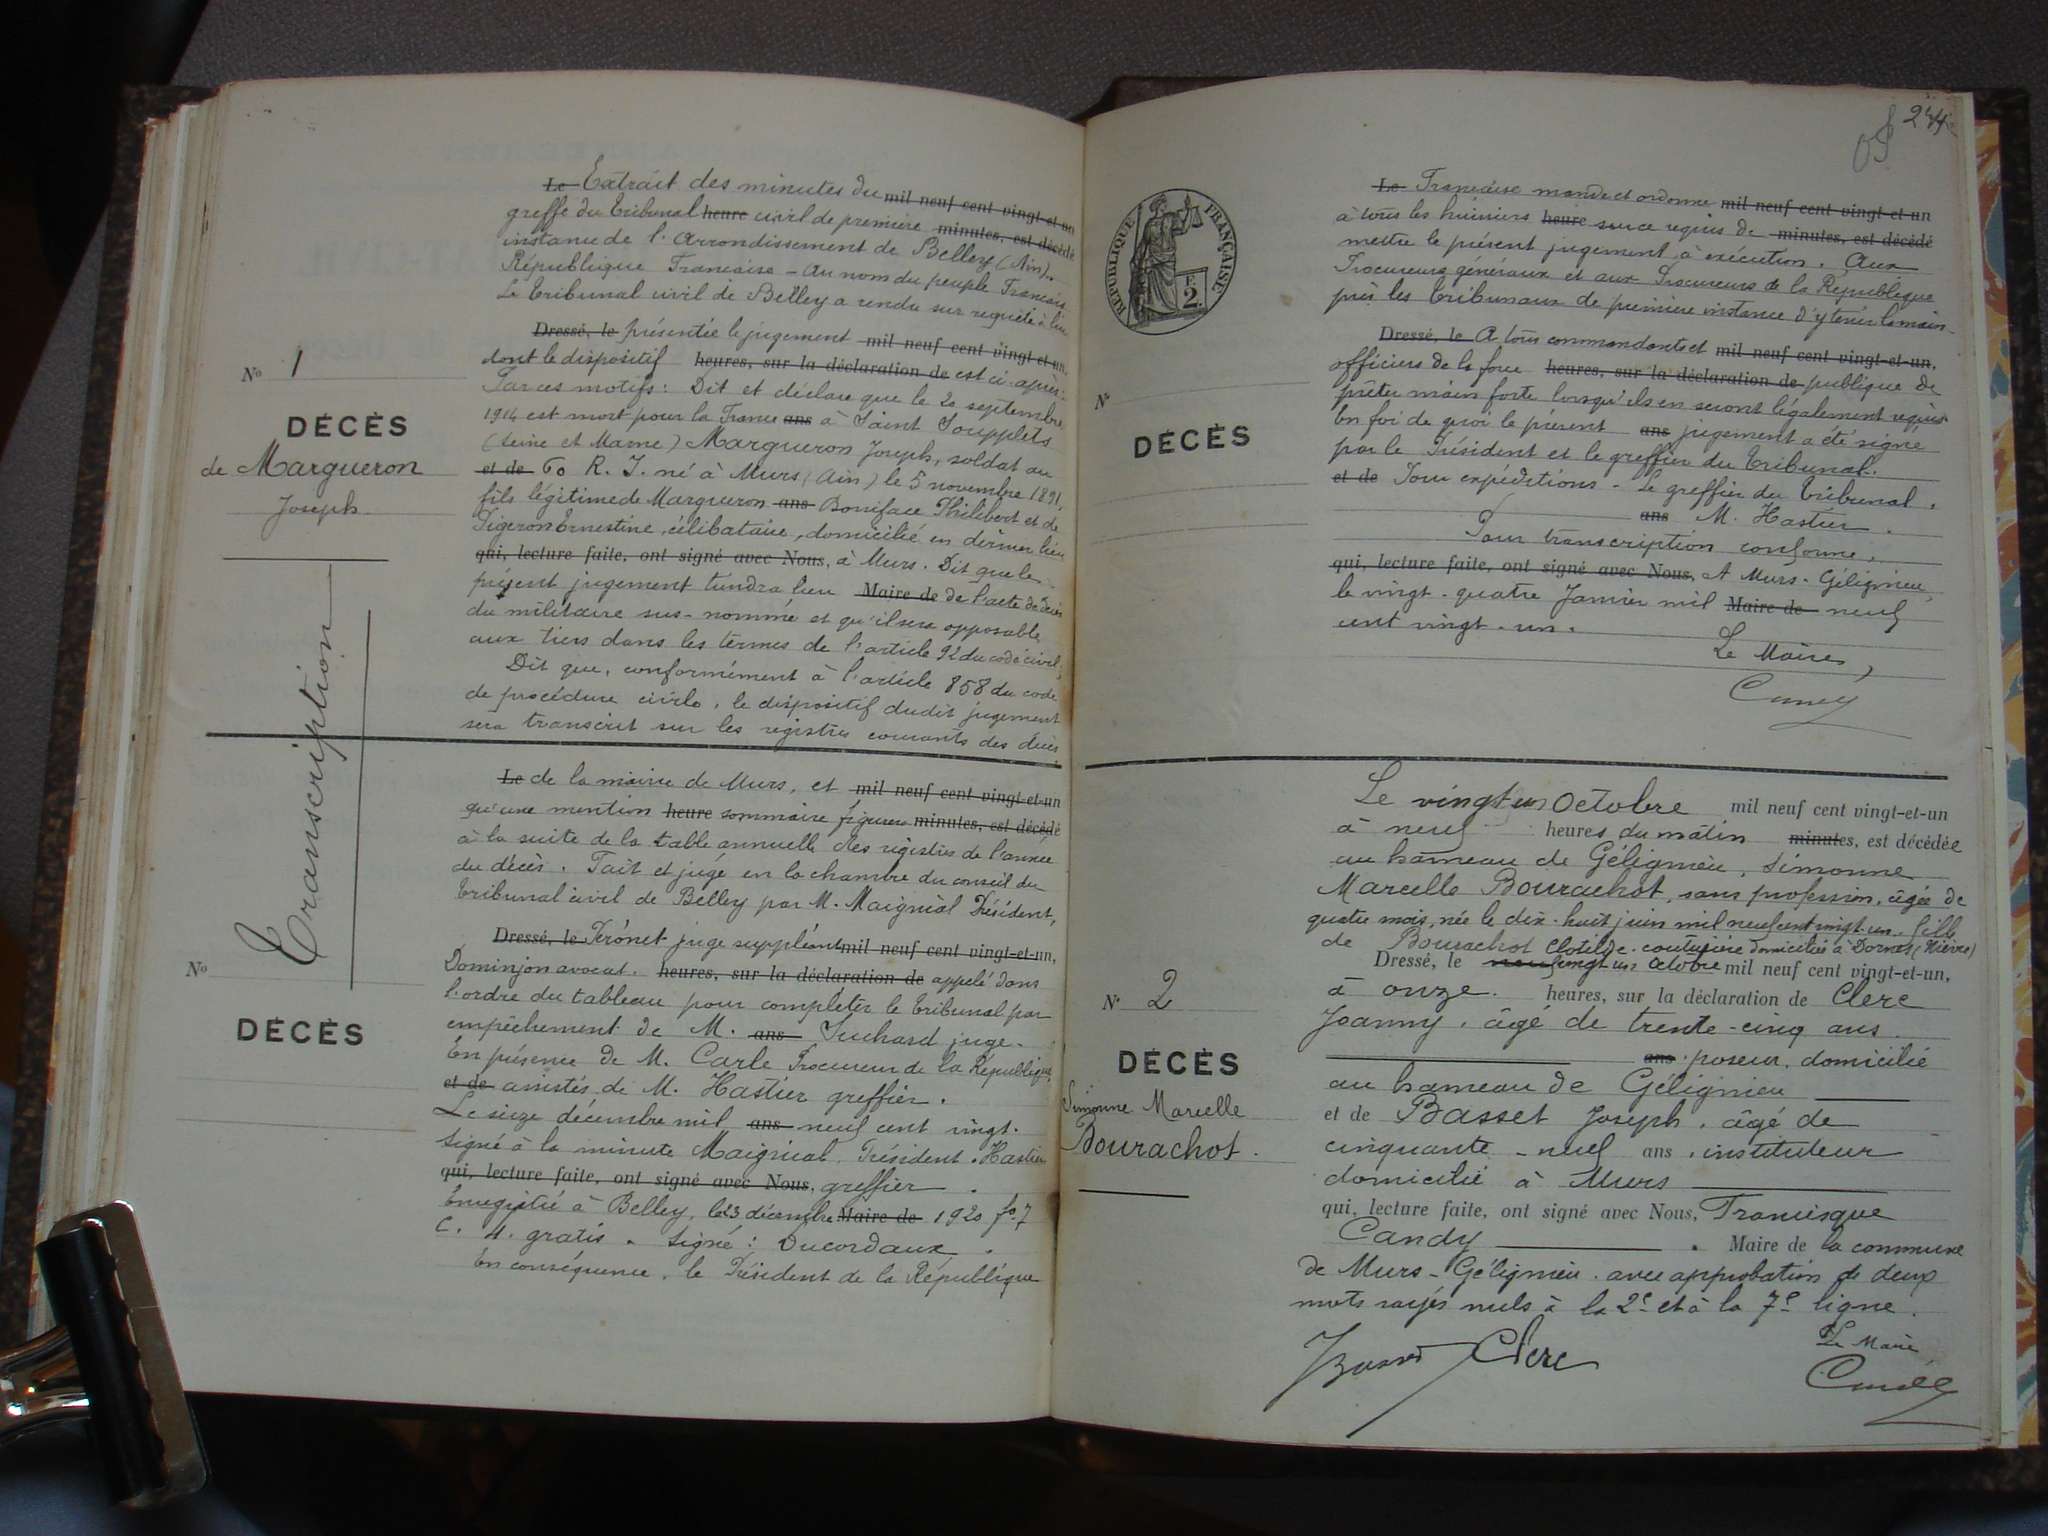 Le Extrait des minutes du mil neuf cent vingt-et-un
greffe du Tribunal heure civil de première minutes, est décédé
instance de l'Arrondissement de Belley (Ain).
République Française - Au nom du peuple Français
Le Tribunal civil de Belley a rendu sur requête à lui
Dressé, le présentée le jugement mil neuf cent vingt-et-un,
dont le dispositif heures, sur la déclaration de est ci-après:
Par ces motifs: Dit et déclare que le 20 septembre
1914 est mort pour la France ans à Saint Soupplets
(Seine et Marne) Margueron Joseph, soldat au
et de 60 R. I. né à Murs (Ain) le 5 novembre 1891,
fils légitime de Margueron ans Boniface Philibert et de
Pigeron Ernestine, célibataire, domicilié en dernier lieu
qui, lecture faite, ont signé avec Nous, à Murs. Dit que le
présent jugement tiendra lieu Maire de de l'acte de décès
du militaire sus-nommé et qu'il sera opposable
aux tiers dans les termes de l'article 92 du code civil;
Dit que, conformément à l'article 858 du code
de procédure civile, le dispositif dudit jugement
sera transcrit sur les registres courants des décès
No 1
DÉCÈS
de Margueron
Joseph
Transcription
Le de la mairie de Murs, et mil neuf cent vingt-et-un
qu'une mention heure sommaire figurera minutes, est décédé
à la suite de la table annuelle des registres de l'année
du décès. Fait et jugé en la chambre du conseil du
Tribunal civil de Belley par M. Maignial Président,
Dressé, le Peronet juge suppléant mil neuf cent vingt-et-un,
Dominjon avocat. heures, sur la déclaration de appelé dans
l'ordre du tableau pour compléter le Tribunal par
empêchement de M. ans Suchard juge.
En présence de M. Carle Procureur de la République,
et de assistés de M. Hastier greffier.
Le seize décembre mil ans neuf cent vingt.
Signé à la minute Maignial Président. Hastier
qui, lecture faite, ont signé avec Nous, greffier.
Enregistré à Belley, le 23 décembre Maire de 1920 fo 7
C. 4. gratis. Signé: Ducordaux.
En conséquence, le Président de la République
No
DÉCÈS
244
RÉPUBLIQUE FRANÇAISE
2
Le Française mande et ordonne mil neuf cent vingt-et-un
à tous les huissiers heure sur ce requis de minutes, est décédé
mettre le présent jugement à exécution. Aux
Procureurs généraux et aux Procureurs de la République
près les tribunaux de première instance d'y tenir la main.
Dressé, le A tous commandants et mil neuf cent vingt-et-un,
officiers de la force heures, sur la déclaration de publique de
prêter main forte lorsqu'ils en seront légalement requis.
En foi de quoi le présent ans jugement a été signé
par le Président et le greffier du Tribunal.
et de Pour expéditions - Le greffier du Tribunal.
ans M. Hastier.
Pour transcription conforme.
qui, lecture faite, ont signé avec Nous, A Murs-Gélignieu,
le vingt-quatre Janvier mil Maire de neuf
cent vingt-un.
Le Maire,
Candy
No
DÉCÈS
Le vingt un Octobre mil neuf cent vingt-et-un
à neuf heures du matin minutes, est décédée
au hameau de Gélignieu, Simonne
Marcelle Bourachot, sans profession, âgée de
quatre mois, née le dix-huit juin mil neuf cent vingt-un, fille
de Bourachot Clotilde, couturière domiciliée à Dornes (Nièvre)
Dressé, le neuf vingt un Octobre mil neuf cent vingt-et-un,
à onze heures, sur la déclaration de Clerc
Joanny, âgé de trente-cinq ans
ans poseur, domicilié
au hameau de Gélignieu
et de Basset Joseph, âgé de
cinquante-neuf ans, instituteur
domicilié à Murs
qui, lecture faite, ont signé avec Nous, Francisque
Candy. Maire de la commune
de Murs-Gélignieu. avec approbation de deux
mots rayés nuls à la 2e et à la 7e ligne.
JBasset Clerc
Le Maire
Candy
No 2
DÉCÈS
Simonne Marcelle
Bourachot.